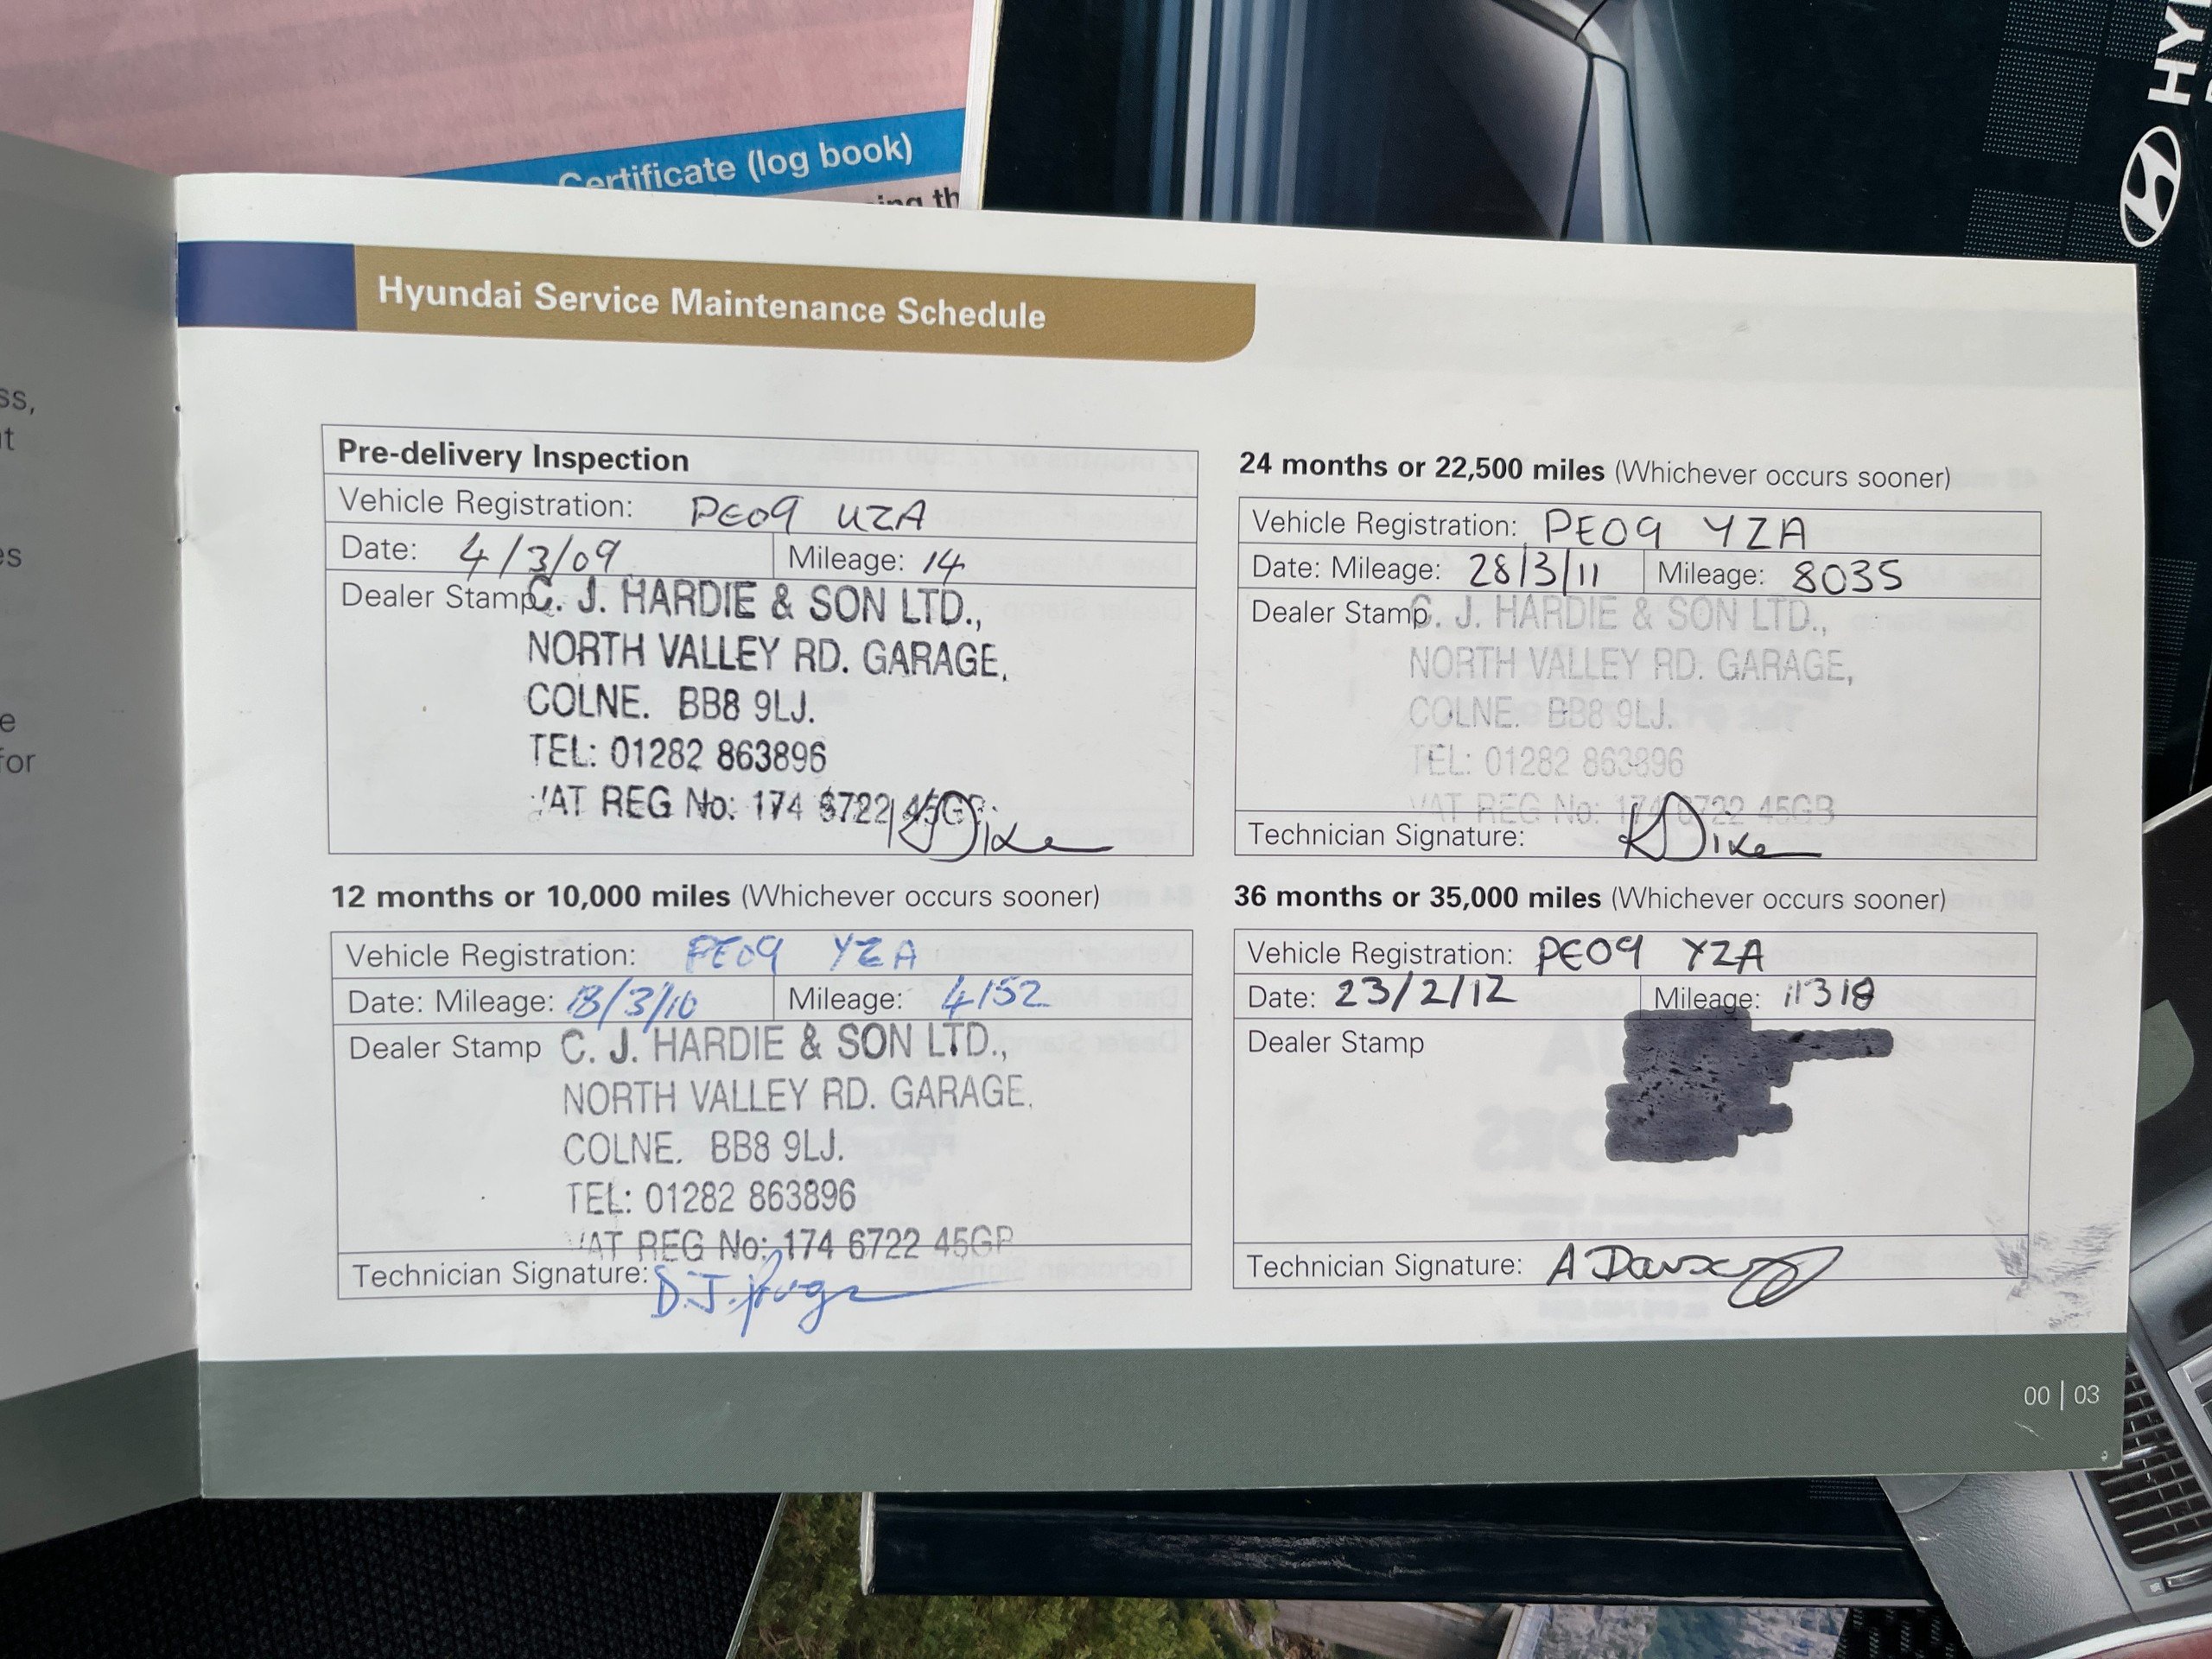 ss,
t
es
e
for
Certificate (log book)
ing th
HY
Hyundai Service Maintenance Schedule
Pre-delivery Inspection
Vehicle Registration: PE09 UZA
Date: 4/3/09 Mileage: 14
Dealer Stamp C. J. HARDIE & SON LTD.,
NORTH VALLEY RD. GARAGE,
COLNE. BB8 9LJ.
TEL: 01282 863896
VAT REG No: 174 6722 45GB
12 months or 10,000 miles (Whichever occurs sooner)
Vehicle Registration: PE09 YZA
Date: Mileage: 18/3/10 Mileage: 4152
Dealer Stamp C. J. HARDIE & SON LTD.,
NORTH VALLEY RD. GARAGE.
COLNE. BB8 9LJ.
TEL: 01282 863896
VAT REG No: 174 6722 45GB
Technician Signature: D.J.
24 months or 22,500 miles (Whichever occurs sooner)
Vehicle Registration: PE09 YZA
Date: Mileage: 28/3/11 Mileage: 8035
Dealer Stamp C. J. HARDIE & SON LTD.,
NORTH VALLEY RD. GARAGE,
COLNE. BB8 9LJ.
TEL: 01282 863896
VAT REG No: 174 6722 45GB
Technician Signature:
36 months or 35,000 miles (Whichever occurs sooner)
Vehicle Registration: PE09 YZA
Date: 23/2/12 Mileage: 11318
Dealer Stamp
Technician Signature: A
00 | 03